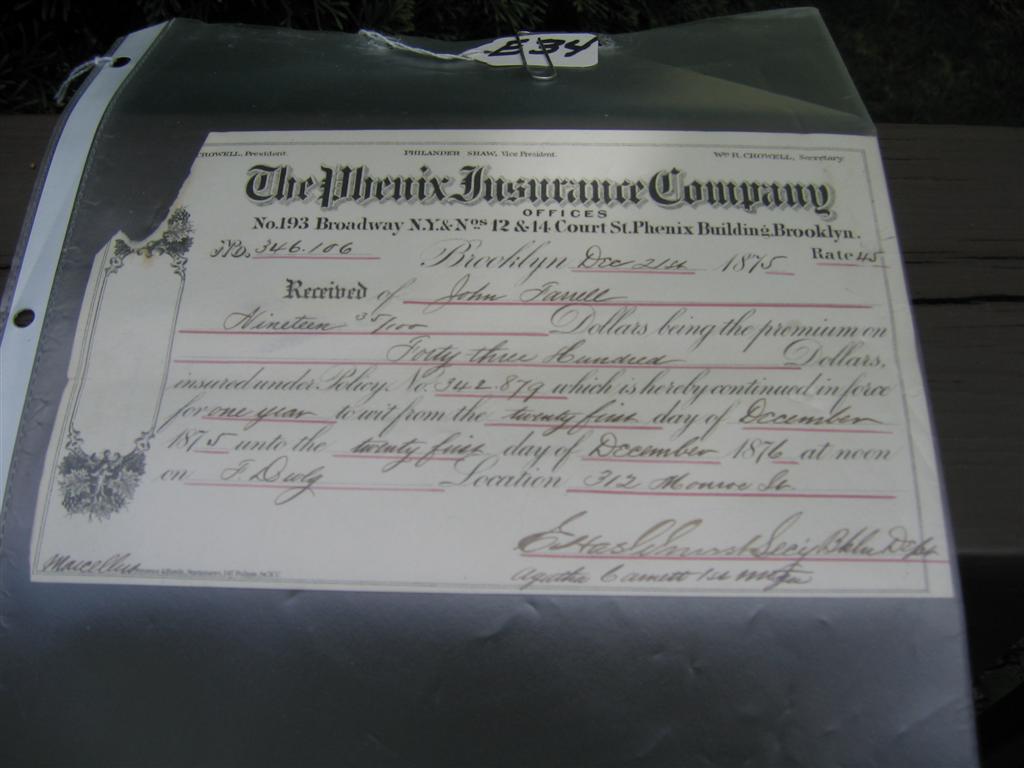 E34
CROWELL, President. PHILANDER SHAW, Vice President. Wm R. CROWELL, Secretary
The Phenix Insurance Company
OFFICES
No. 193 Broadway N.Y. & Nos 12 & 14 Court St. Phenix Building, Brooklyn.
No. 346.106 Brooklyn Dec 21st 1875 Rate 45
Received of John Farrell
Nineteen 35/100 Dollars being the premium on
Forty three Hundred Dollars,
insured under Policy No. 342.879 which is hereby continued in force
for one year to wit from the twenty first day of December
1875 unto the twenty first day of December 1876 at noon
on F. Dwlg Location 312 Monroe St.
Secy Bkln Dept
Marcellus
Agatha 1st Mtgee